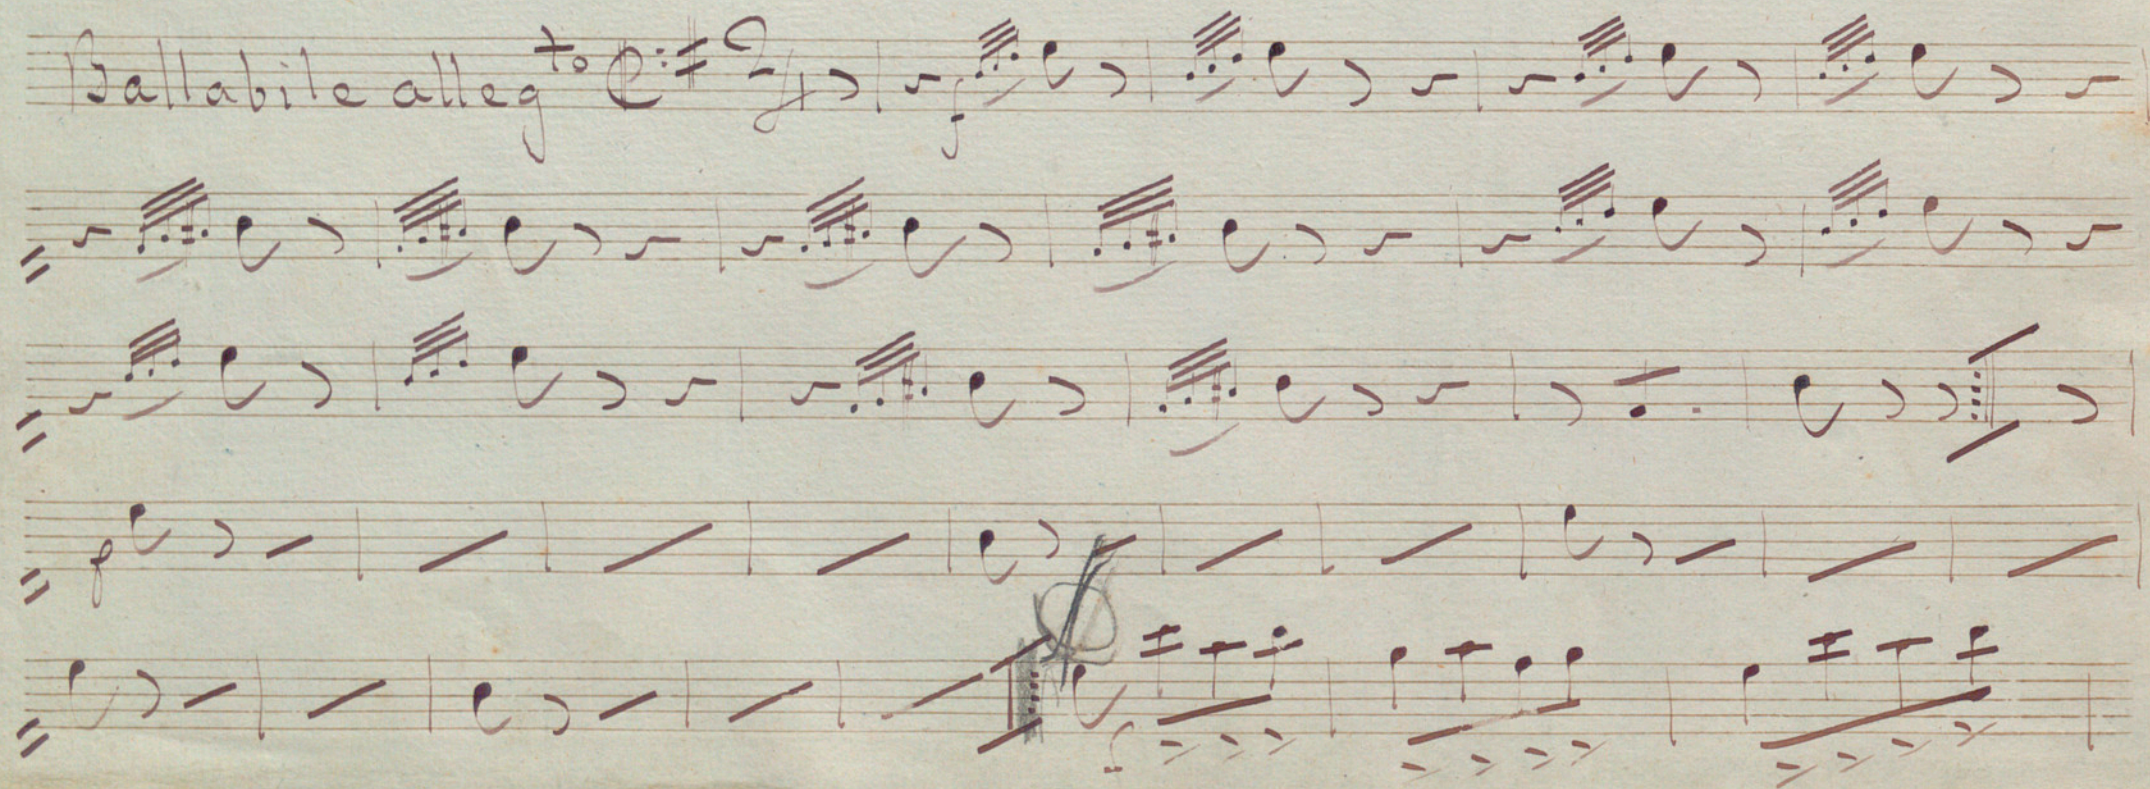 Ballabile allegto 2/4
f
f
f